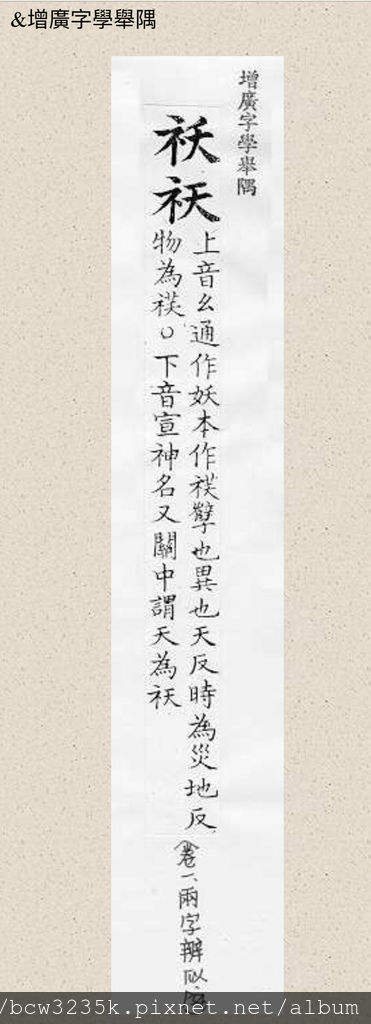 &增廣字學舉隅
增廣字學舉隅
祅祆
上音幺通作妖本作祆孼也異也天反時為災地反
物為祆○下音宣神名又關中謂天為祆
(卷一、兩字辨似
/bcw3235k.pixnet.net/album